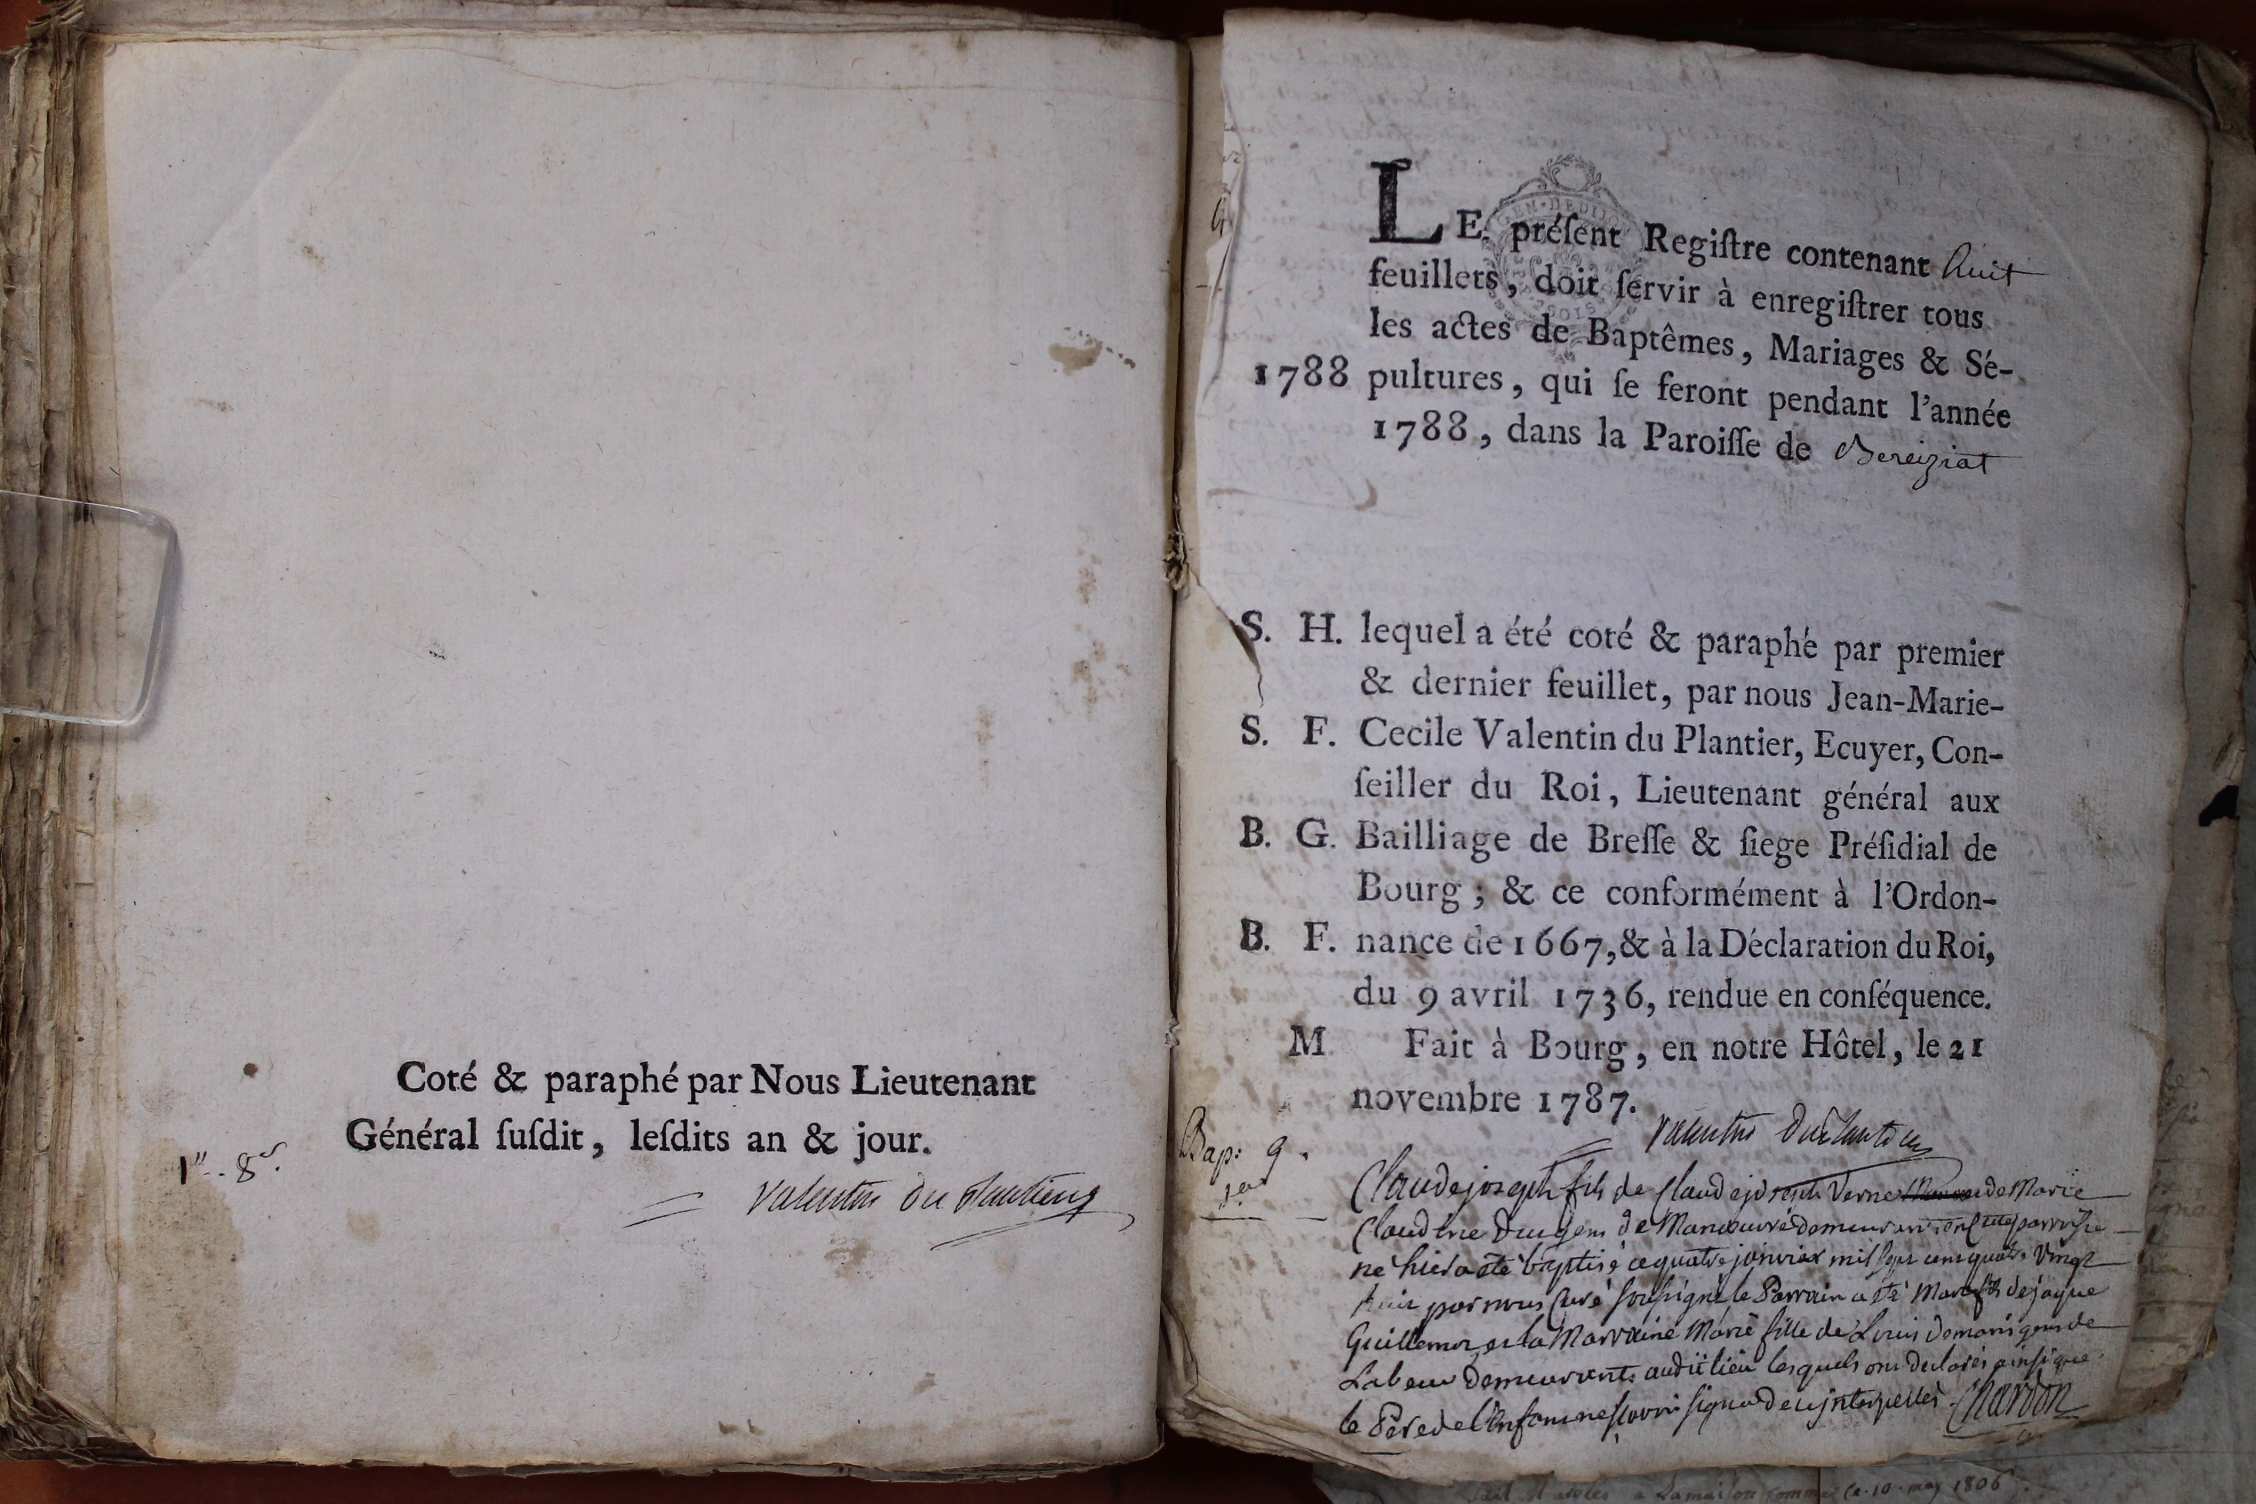 Coté & paraphé par Nous Lieutenant
Général ſuſdit, leſdits an & jour.
1er.. 8er.
Valentin Du Plantier
LE préſent Regiſtre contenant huit
feuillets, doit ſervir à enregiſtrer tous
les actes de Baptêmes, Mariages & Sé-
1788 pultures, qui ſe feront pendant l'année
1788, dans la Paroiſſe de Bereiziat
S. H. lequel a été coté & paraphé par premier
& dernier feuillet, par nous Jean-Marie-
S. F. Cecile Valentin du Plantier, Ecuyer, Con-
ſeiller du Roi, Lieutenant général aux
B. G. Bailliage de Breſſe & ſiege Préſidial de
Bourg ; & ce conformément à l'Ordon-
B. F. nance de 1667, & à la Déclaration du Roi,
du 9 avril 1736, rendue en conſéquence.
M Fait à Bourg, en notre Hôtel, le 21
novembre 1787.
Valentin Du Plantier
Bap: 9.
1er
Claude joseph fils de Claude joseph Verne de Marie
Claudine gens de Manœuvre demeurant en cette parroisse
né hier a été baptisé ce quatre janvier mil sept cent quatre vingt
huit par nous Curé soussigné le Parrain a été Marc fils de jaque
Guillemot et la Marraine Marie fille de Louis gens de
Labeur demeurants audit lieu lesquels ont declarés ainsi que
le Pere de l'Enfant ne sçavoir signer de ce interpellés Chardon
a la maison commune ce 10 may 1806